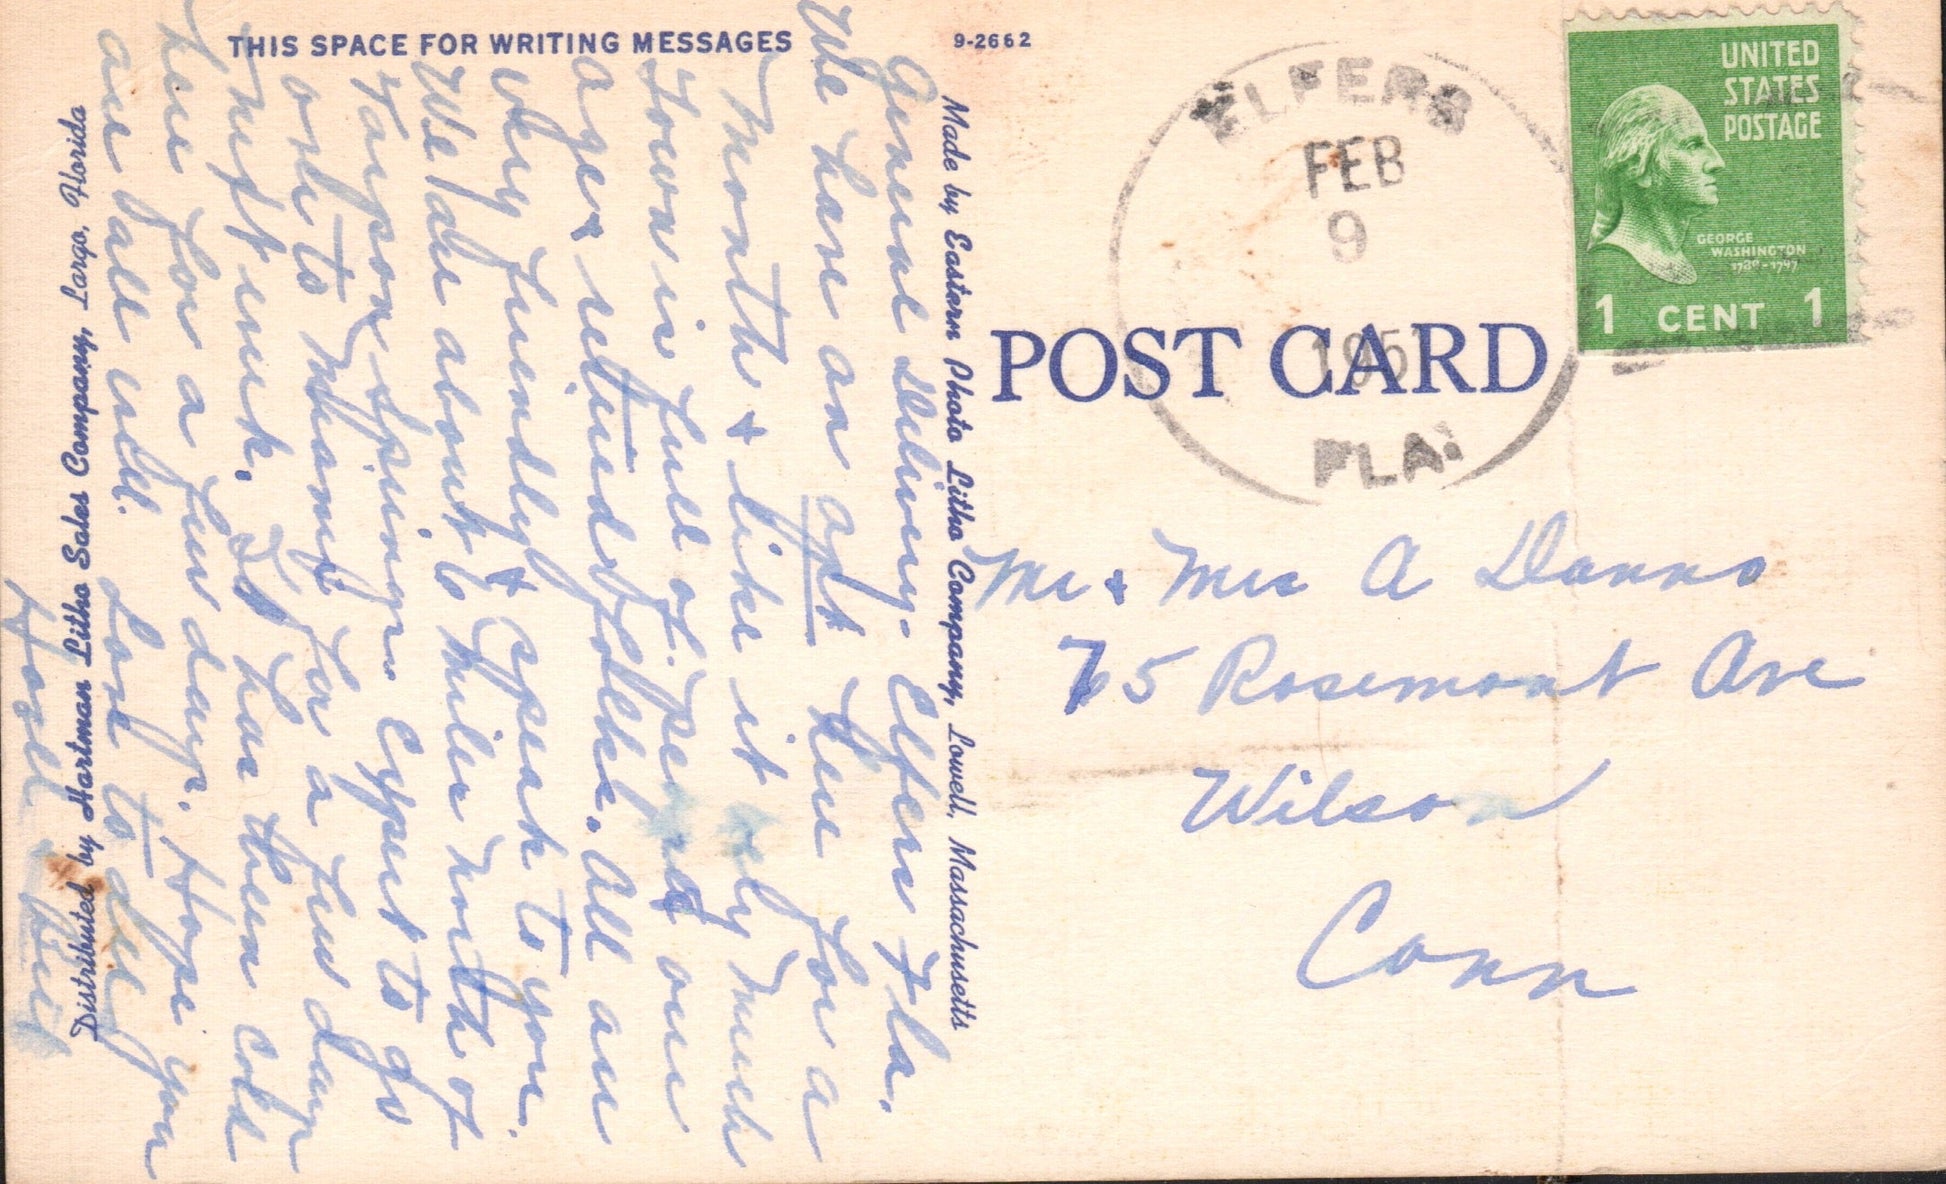 THIS SPACE FOR WRITING MESSAGES
9-2662
General Delivery - Elfers Fla.
We have an apt here for a
Month & like it very much
Town is full of people our
age & retired folks. All are
very friendly & speak to you.
We are about 6 miles north of
Tarpon Springs. Expect to go
over to Miami for a few days
next week. It has been cold
here for a few days. Hope you
are all well. Love to all
Distributed by Hartman Litho Sales Company, Largo, Florida
Made by Eastern Photo Litho Company, Lowell, Massachusetts
ELFERS
FEB
9
195
FLA.
UNITED
STATES
POSTAGE
GEORGE
WASHINGTON
1789-1797
1 CENT 1
POST CARD
Mr & Mrs A Danno
75 Rosemont Ave
Wilson
Conn